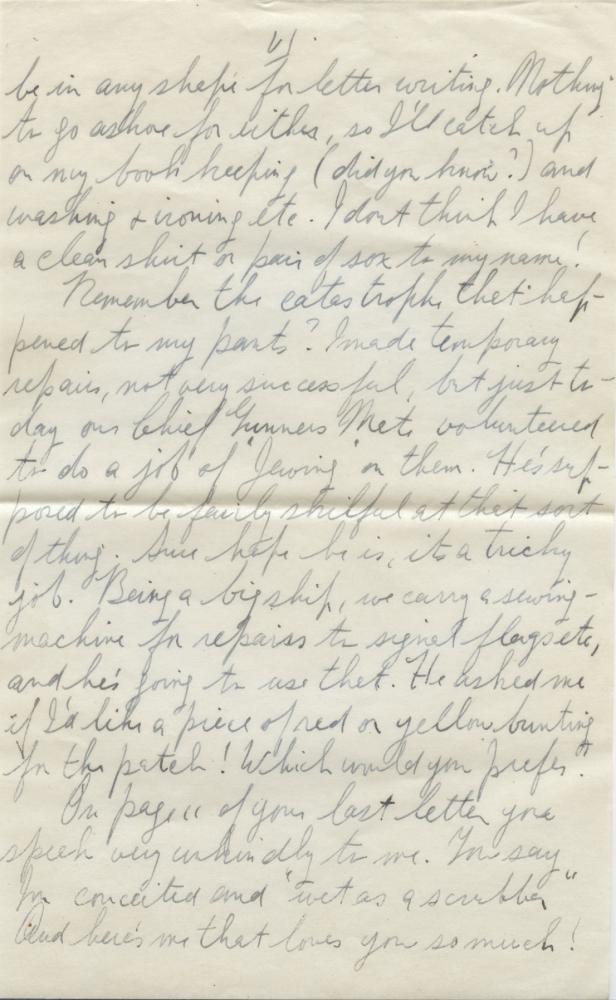 v/
be in any shape for letter writing. Nothing
to go ashore for either, so I'll catch up
on my book keeping (did you know?) and
washing & ironing etc. I dont think I have
a clean shirt or pair of sox to my name!
Remember the catastrophe that hap-
pened to my pants? I made temporary
repairs, not very successful, but just to-
day our Chief Gunners Mate volunteered
to do a job of "Jewing" on them. He's sup-
posed to be fairly skilful at that sort
of thing. Sure hope he is, its a tricky
job. Being a big ship, we carry a sewing-
machine for repairs to signal flags etc,
and he's going to use that. He asked me
if I'd like a piece of red or yellow bunting
for the patch! Which would you prefer?
On page 11 of your last letter you
speak very unkindly to me. You say
I'm conceited and "wet as a scrubber"
And here's me that loves you so much!